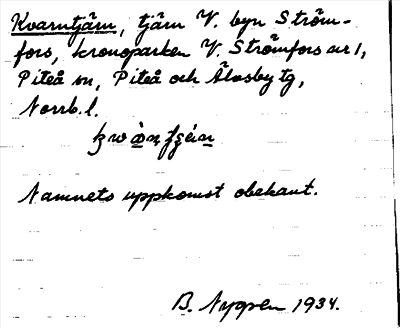 Kvarntjärn, tjärn V. byn Ström-
fors, kronoparken V. Strömfors nr 1,
Piteå sn, Piteå och Älvsby tg,
Norrb. l.
Namnets uppkomst obekant.
B. Nyppen 1934.